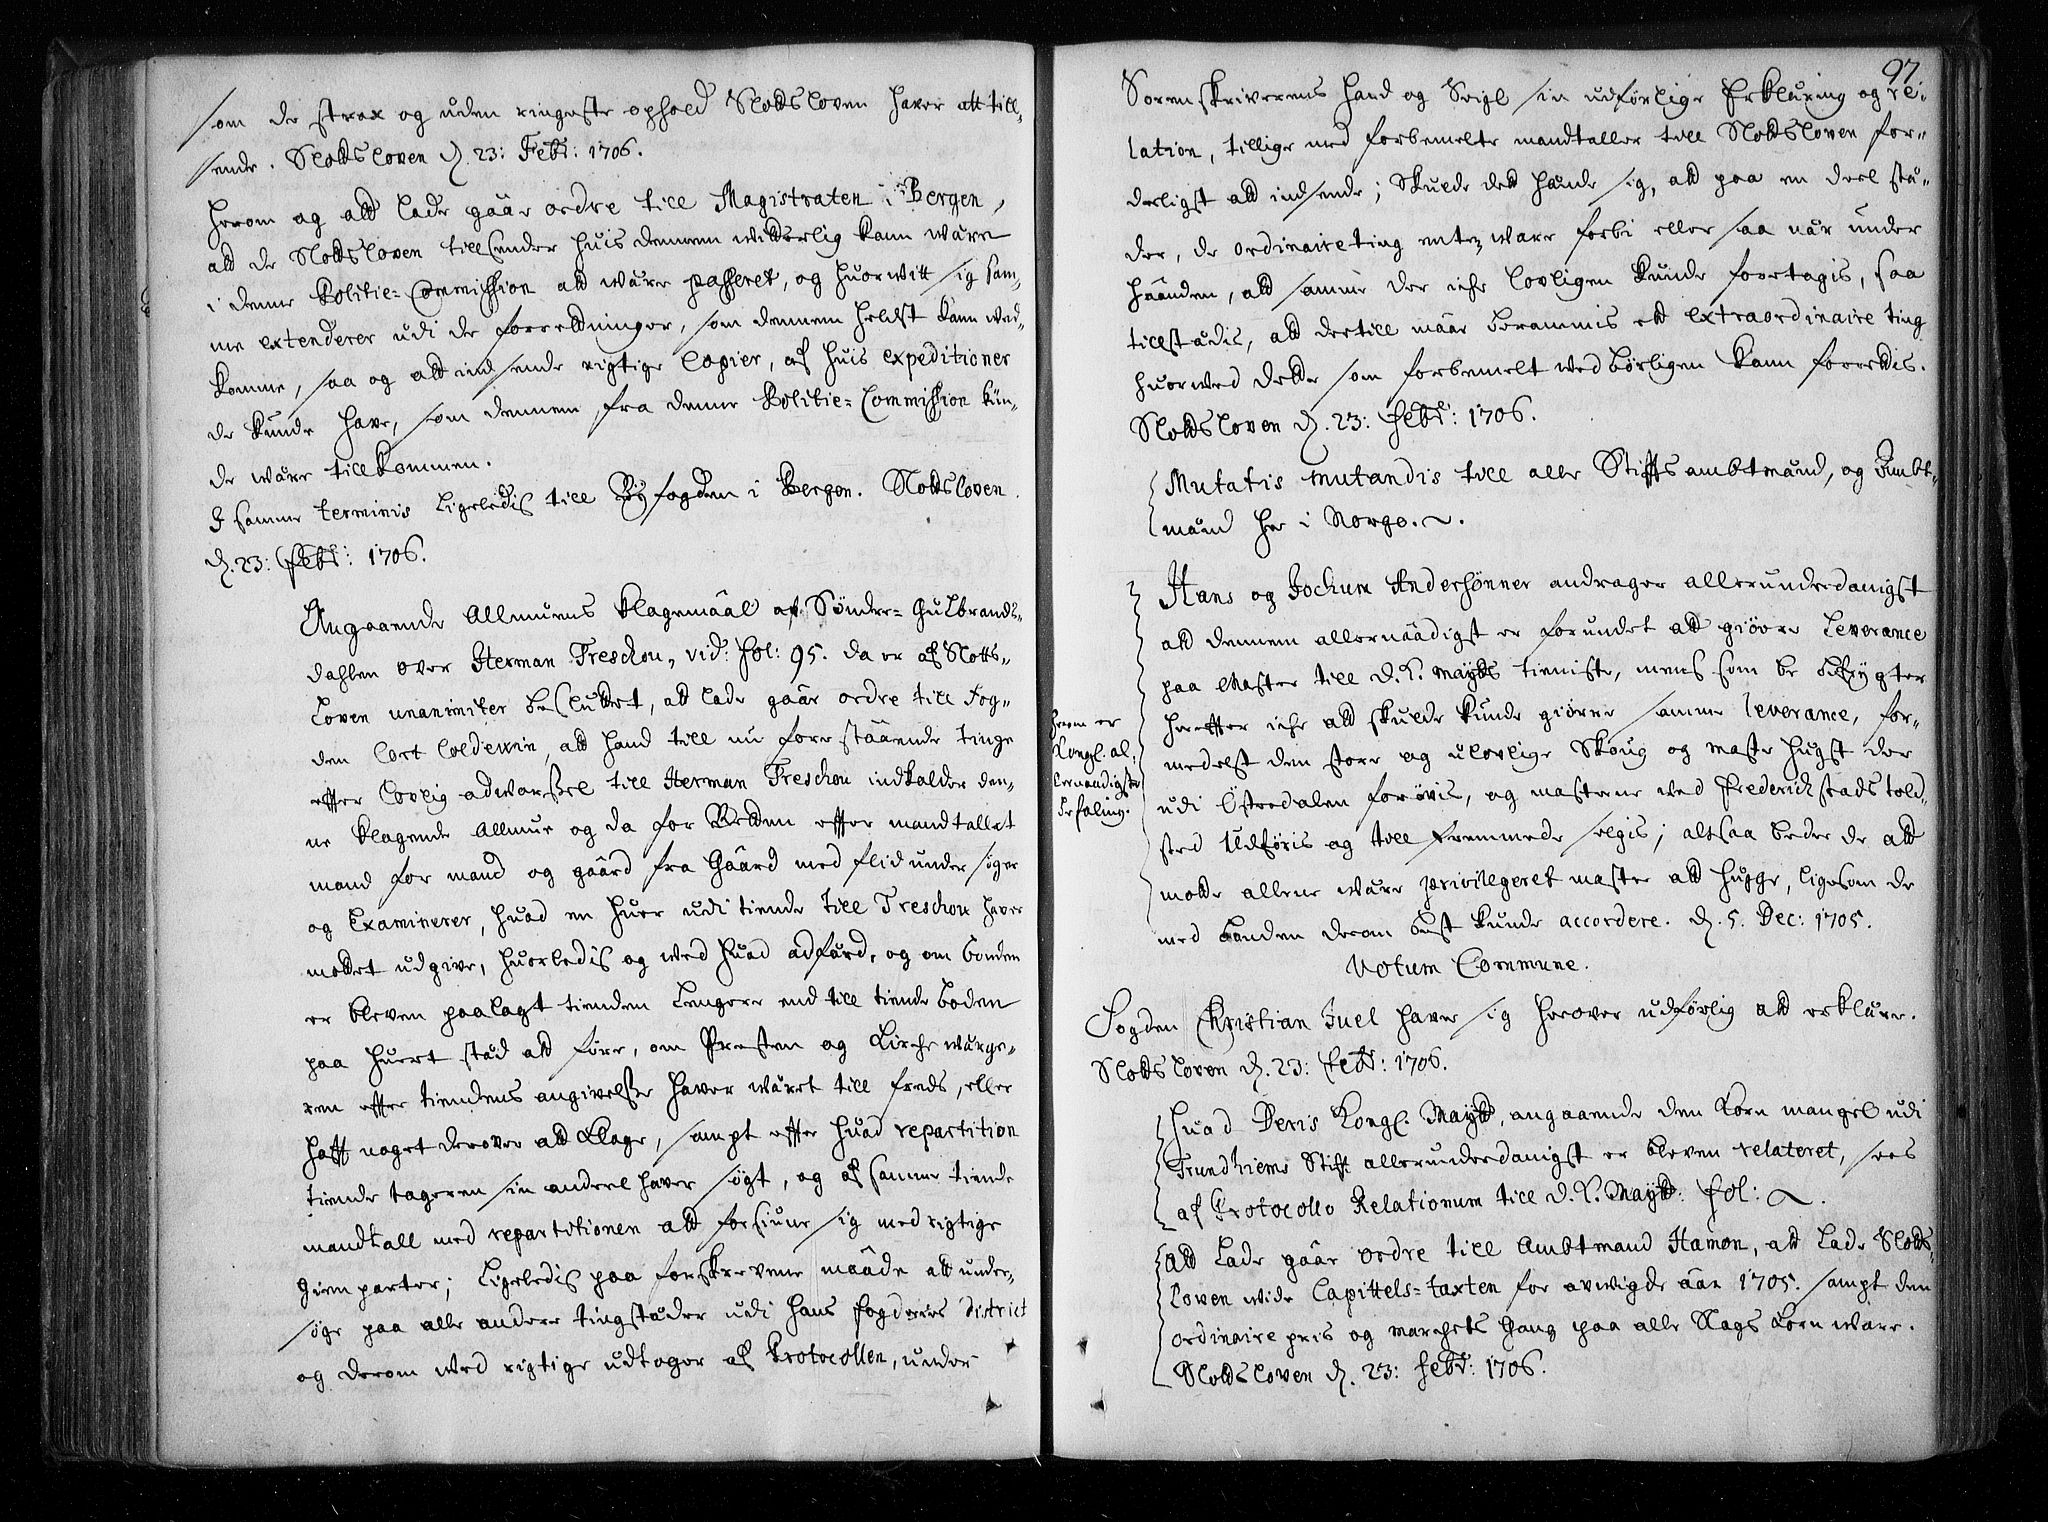 som de strax og uden ringeste ophold Slodsloven haver att till-
sende. Slodsloven d. 23: Febr: 1706.
Herom og att lade gaar ordre till Magistraten i Bergen,
att de Slodsloven tillsender huis dennem witterlig kann wære
i denne Politie-Commission att wære passeret, og huorwitt sig sam-
me extenderer udi de forretninger, som dennem heldst kann wed-
komme, saa og att indsende rigtige Copier, af huis expeditioner
de kunde have, som dennem fra denne Politie-Commission kun-
de wære tillkommen.
I samme terminis Ligeledis till Byfogden i Bergen. Slodsloven
d. 23: Febr: 1706.
Angaaende Allmuens klagemaal af Sønder-Gulbrands-
dahlen over Herman Treschou, vid: fol: 95. da er af Slotts-
loven unanimiter besluttet, att lade gaar ordre till Fog-
den Cort Coldewin, att hand till nu forestaaende tinge
effter lovlig adwarssel till Herman Treschou indkalder den-
ne klagende Allmue og da for Retten effter mandtallet
mand for mand og gaard fra Gaard med flid undersøger
og Examinerer, huad en huer udi tiende till Treschou haver
mottet udgive, huorledis og wed huad adfærd, og om bonden
er bleven paalagt tienden Lengere end till tiende boden
paa huert stæd att føre, om Presten og Kirchewærge-
ren effter tiendens angivelsse haver wæret till freds, eller
hafft noget derover att klage, sampt effter huad repartition
tiende tageren sin andeel haver søgt, og af samme tiende
mandtall med repartitionen att forsiune sig med rigtige
Gienparter; Ligeledis paa forskrevene maade att under-
søge paa alle andere tingstæder udi hans fogderies district
og derom wed rigtige udtoger af Protocollen, under
97.
Sorenskriverens haand og Seigl sin udførlige Erklæring og re-
lation, tillige med forbemelte mandtaller till Slodsloven for-
derligst att indsende; Skulde dett hænde sig, att paa en deel stæ-
der, de ordinaire ting enten ware forbi eller saa nær under
haanden, att samme der iche lovligen kunde foretagis, saa
tillstædis, att dertill maa berammis ett extraordinaire ting
huorwed dette som forbemelt wed børligen kann forrettis.
Slodsloven d. 23: Febr: 1706.
Mutatis mutandis till alle Stiffts ambtmænd, og Ambt-
mænd her i Norge.
Hans og Jochum Andersønner andrager allerunderdanigst
att dennem allernaadigst er forundet att giøre Leverance
paa Master till D. K. Maytts tieniste, mens som de befrygter
hereffter iche att skulde kunde giøre samme leverance, for-
medelst den store og ulovlige Skoug og maste hugst der
udi Østerdalen forøvis, og masterne wed Frederichstads told-
sted Udføris og till fremmede selgis; altsaa beder de att
motte allene wære privilegeret master att hugge, ligesom de
med bonden derom best kunde accordere. d. 5. Dec: 1705.
herom er
Kongl. al-
lernaadigste
befaling.
Votum Commune.
Fogden Christian Juel haver sig herover udførlig att erklære.
Slodsloven d. 23: Febr: 1706.
Huad Deris Kongl. Maytt. angaaende den Korn mangel udi
Trundhiems Stift allerunderdanigst er bleven relateret, sees
af Protocollo Relationum till D. K. Maytt. fol:
Att Lade gaar ordre till Ambtmand Hamon, att Lade Slods-
loven wide Capittels-taxten for avwigde aar 1705. sampt den
ordinaire pris og marchets Gang paa alle Slags Korn ware.
Slodsloven d. 23: Febr: 1706.